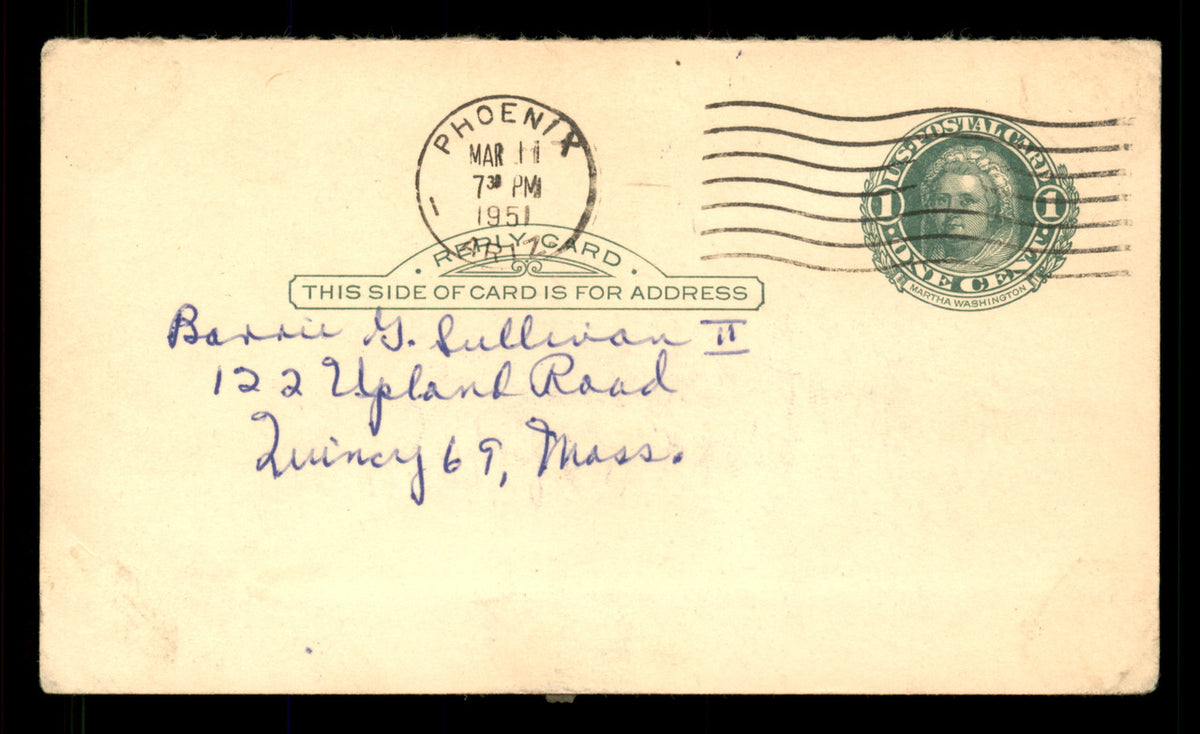 PHOENIX
MAR 11
7 30 PM
1951
ARIZ
1
U.S. POSTAL CARD
1 1
ONE CENT
MARTHA WASHINGTON
· REPLY CARD ·
THIS SIDE OF CARD IS FOR ADDRESS
Barrie G. Sullivan II
122 Upland Road
Quincy 69, Mass.